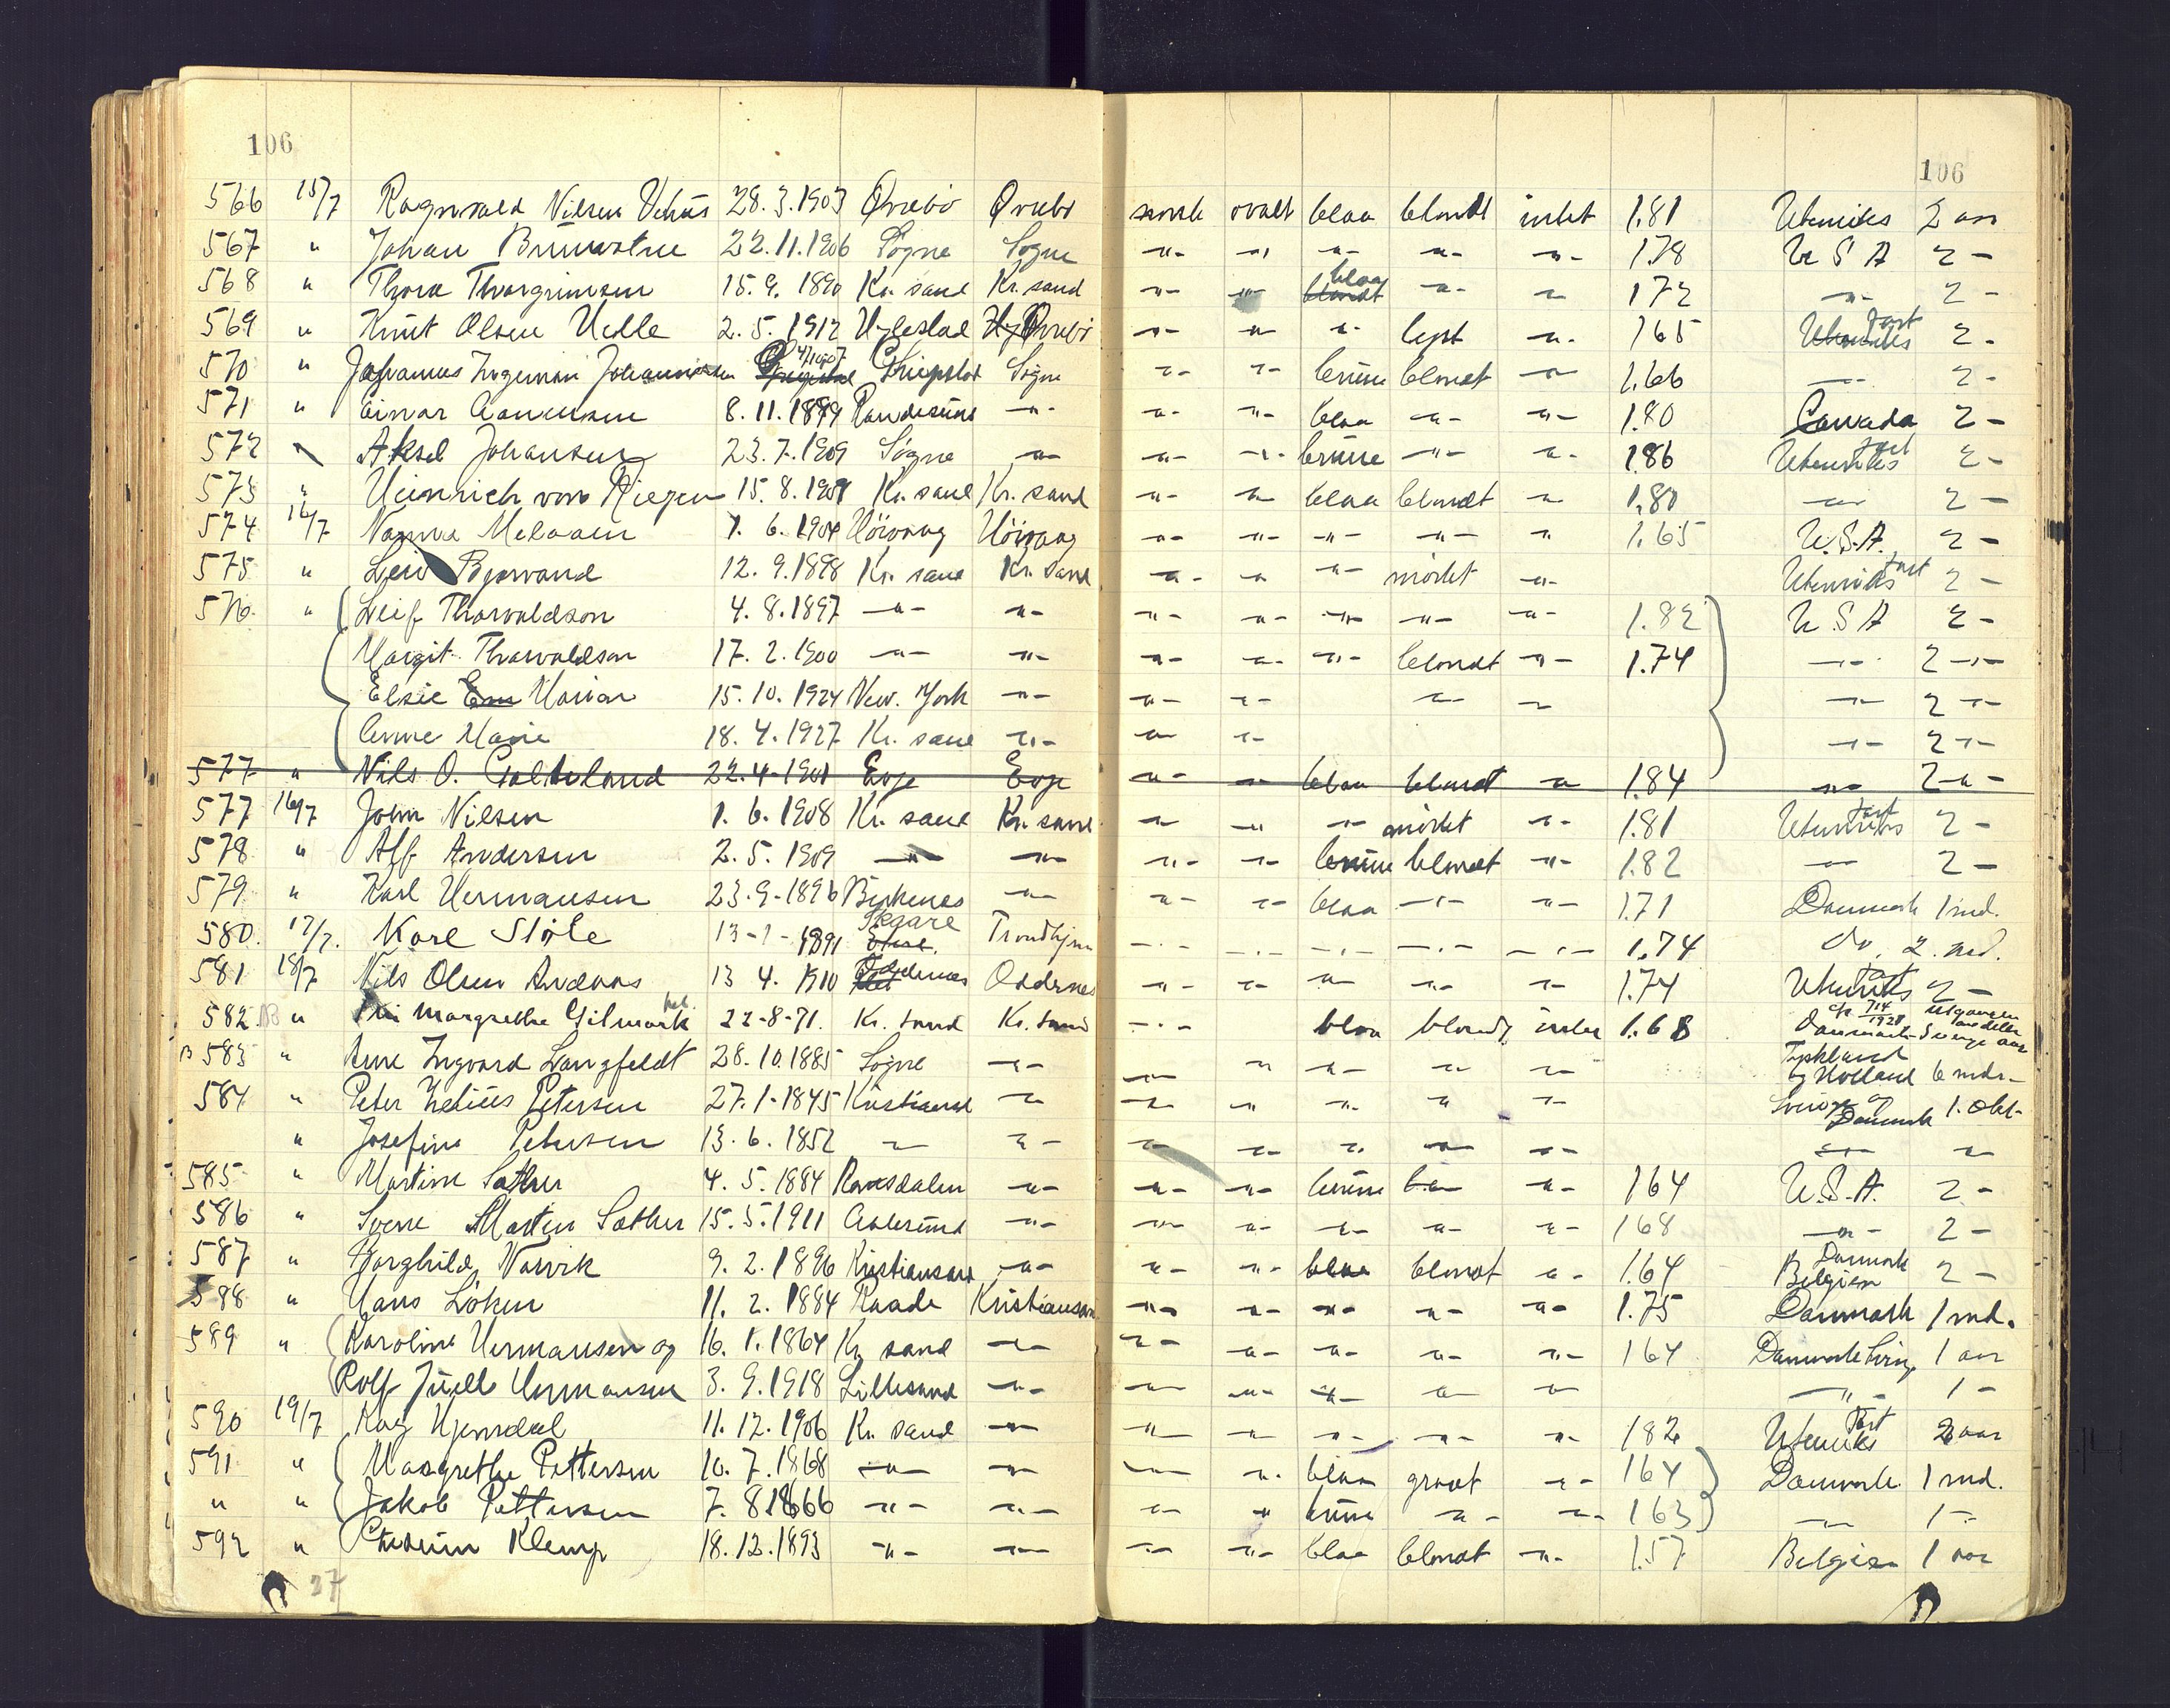 106 106
566 15/7 Ragnvald Nilsen Vehus 28.3.1903 Øvrebö Øvrebö smale ovalt blaa blondt intet 1.81 Utenriks 2 aar
567 " Johan 22.11.1906 Søgne Søgne -"- -"- -"- -"- -"- 1.78 U S A 2 -
568 " Thora Thorgrimsen 15.9.1890 Kr. sand Kr. sand -"- -"- blaa -"- - 172 -"- 2 -
569 " Knut Olsen 2.5.1912 Hylestad Øvrebö -"- -"- -"- lyst -"- 165 Utenriks fart 2 -
570 " Johannes Ingeman Johannessen 4/1 1907 Greipstad Søgne -"- -"- brune blondt -"- 1.66 -"- 2 -
571 " Einar Aanensen 8.11.1899 Randesund -"- -"- -"- blaa -"- -"- 1.80 Canada 2 -
572 Aksel Johansen 23.7.1909 Søgne -"- -"- -"- brune -"- -"- 186 Utenriks fart 2 -
573 " Heinrich von Riegen 15.8.1909 Kr. sand Kr. sand -"- -"- blaa blondt - 1.80 -"- 2 -
574 16/7 Nanna 1.6.1904 Höivaag Höivaag -"- -"- -"- -"- " 1.65 U.S.A. 2 -
575 " Leiv Bjorvand 12.9.1898 Kr. sand Kr. sand -"- -"- -"- mörkt -"- Utenriks fart 2 -
576 " Leif Thorvaldson 4.8.1897 -"- -"- -"- -"- -"- -"- -"- 1.82 U S A 2 -
Margit Thorvaldson 17.2.1900 -"- -"- -"- -"- -"- blondt -"- 1.74 -"- 2 -"-
Elsie Marian 15.10.1924 New. York -"- -"- -"- -"- - -"- 2 -"-
Anne Marie 18.4.1927 Kr. sand -"- -"- -"- -"- 2 -"-
577 " Nils O. 22.4-1901 Evje Evje -"- -"- blaa blondt -"- 1.84 -"- 2 -"-
577 16/7 John Nilsen 1.6.1908 Kr. sand Kr. sand -"- -"- -"- mörkt -"- 1.81 Utenriks fart 2 -
578 " Alf Andersen 2.5.1909 -"- -"- -"- -"- brune blondt -"- 1.82 -"- 2 -
579 " Karl Hermansen 23.9-1896 Birkenes -"- -"- -"- blaa -"- -"- 1.71 Danmark 1 md.
580. 17/7. Kare 13-1-1891 Trondhjem -"- -"- -"- -"- -"- 1.74 Do. 2. md.
581 18/7 Nils Olsen 13 4. 1910 Oddernes Oddernes -"- -"- -"- -"- -"- 1.74 Utenriks fart 2 -
582 " Margrethe Gilmark 22-8-71. Kr. sand Kr. sand -"- blaa blondt intet 1.68 Danmark
B 583 " Arne Ingvard Langfeldt 28.10.1885 Søgne -"- -"- -"- -"- -"- -"- Tyskland og Holland 6 mdr-
584 " Peter Petersen 27.1-1845 Kristiansand -"- -"- -"- -"- -"- -"- Sverige og Danmark 1. Okt-
" Josefine Petersen 13.6.1852 -"- -"- -"- -"- -"- -"- -"- -"- -"-
585 " Martine Sæther 4.5.1884 Romsdalen -"- -"- -"- brune -"- 164 U.S.A. 2 -
586 " Sverre Martin Sæther 15.5.1911 Aalesund -"- -"- -"- -"- -"- -"- 168 -"- 2 -
587 " Borghild Narvik 9.2.1896 Kristiansand -"- -"- -"- blaa blondt -"- 1.64 Danmark Belgien 2 -
588 " Hans Löken 11.2.1884 Raade Kristiansand -"- -"- -"- -"- -"- 1.75 Danmark 1 md.
589 " Karoline Hermansen og 16.1.1864 Kr. sand -"- -"- -"- -"- -"- -"- 164 Danmark 1 aar
Rolf Juell Hermansen 3.9.1918 Lillesand -"- -"- -"- -"- -"- -"- -"- 1 -
590 19/7 11.12.1906 Kr. sand -"- -"- -"- -"- -"- -"- 182 Utenriks fart 2 aar
591 " Margrethe Pettersen 10.7.1868 -"- -"- -"- -"- blaa graat -"- 164 Danmark 1 md.
" " Jakob Pettersen 7.8.1866 -"- -"- -"- -"- brune -"- -"- 163 -"- 1 -
592 " Klemp 18.12.1893 -"- -"- -"- -"- blaa blondt -"- 1.57 Belgien 1 aar
27